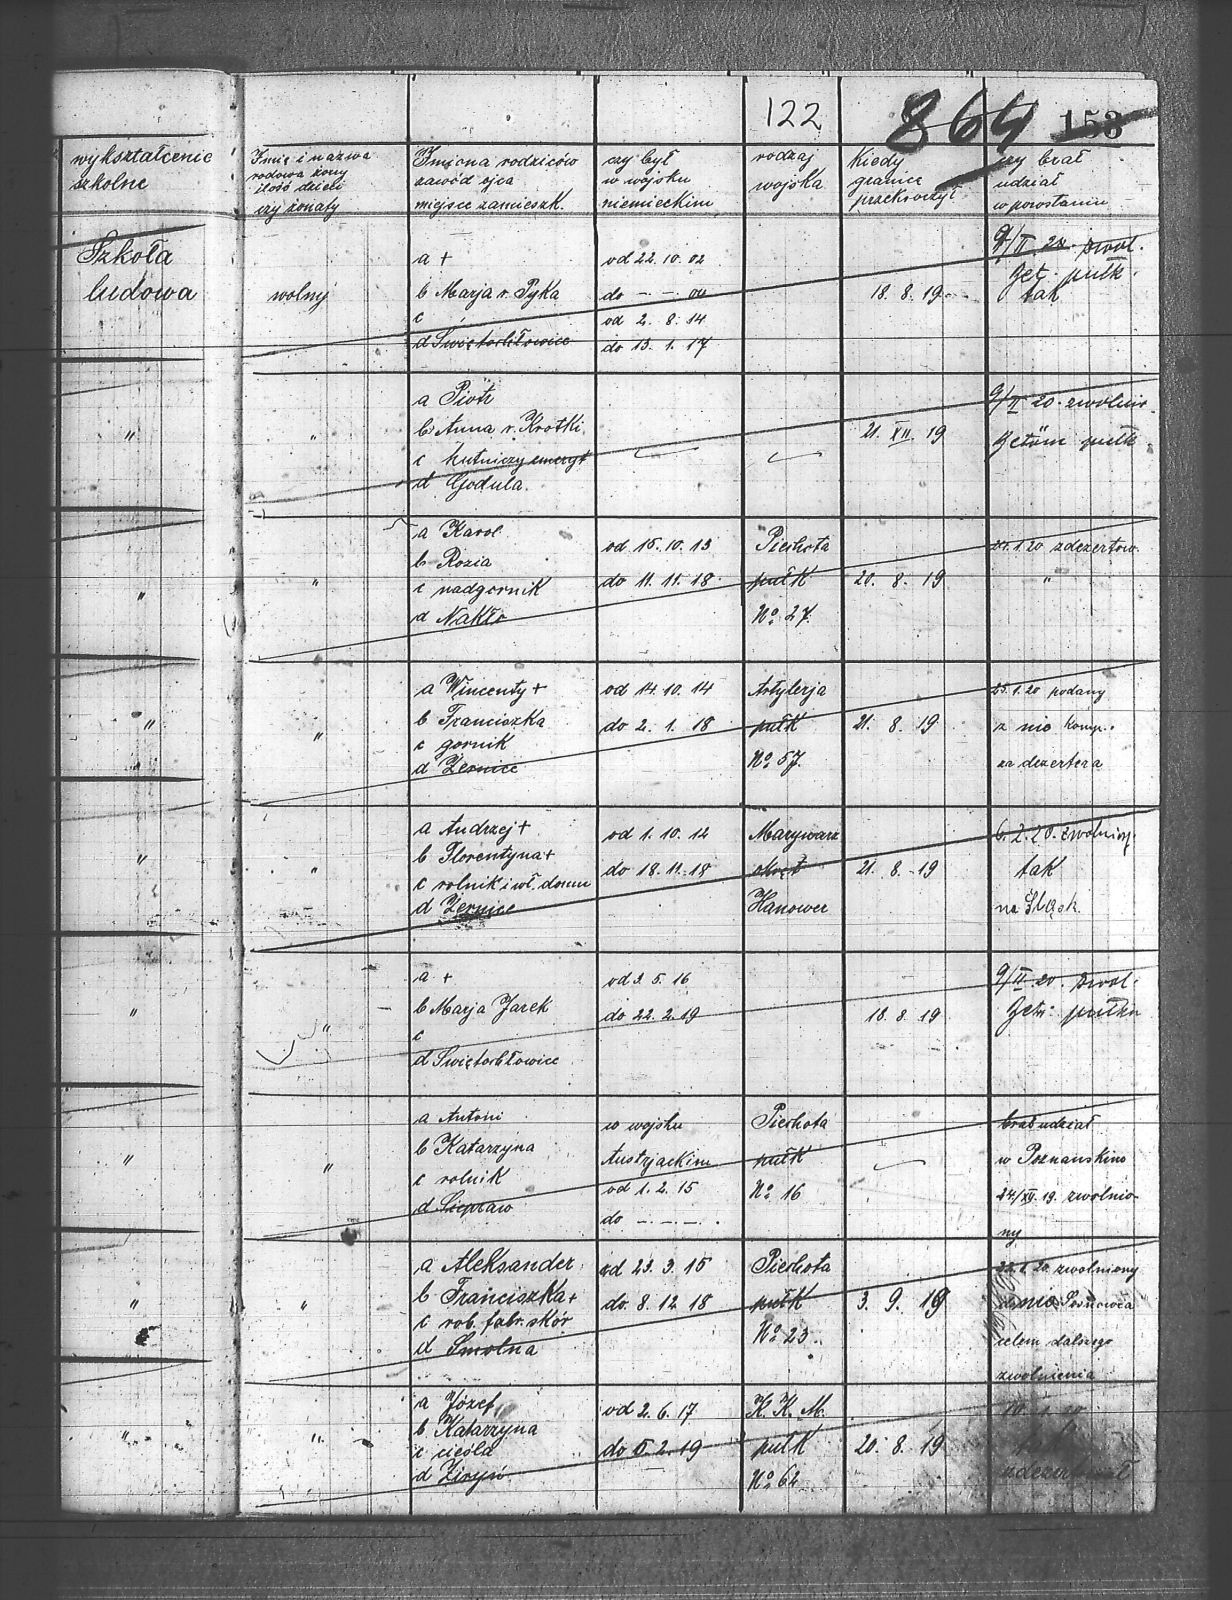 122 864 153
wykształcenie
szkolne
Imię i nazwa
rodowa żony
ilość dzieci
czy żonaty
Imiona rodziców
zawód ojca
miejsce zamieszk.
czy był
w wojsku
niemieckim
rodzaj
wojska
Kiedy
granicę
przekroczył
czy brał
udział
w powstaniu
Szkoła
ludowa
wolny
a +
b Marja r. Pyka
c
d Świętochłowice
od 22. 10. 02
do – – 04
od 2. 8. 14
do 13. 1. 17
18. 8. 19.
9/II. 20. zwol.
pułk.
tak
"
"
a Piotr
b Anna r. Krotki
c hutniczy emeryt
d Godula.
21. XII. 19
9/II 20. zwolnio.
pułk.
"
"
a Karol
b Rozia
c nadgornik
d Nakło
od 15. 10. 13
do 11. 11. 18.
Piechota
pułk
No. 27.
20. 8. 19
1. 20 zdezertow.
"
"
"
a Wincenty +
b Franciszka
c gornik
d Żernice
od 14. 10. 14
do 2. 1. 18
Artylerja
pułk
No. 57.
21. 8. 19
25. 1. 20 podany
z nie komp.
za dezertera
"
"
a Andrzej +
b Florentyna +
c rolnik i wł. domu
d Żernice
od 1. 10. 12
do 18. 11. 18
Marynarz
okręt
Hanower
21. 8. 19
6. 2. 20. zwolniony
tak
na Śląsk.
"
"
a +
b Marja Jarek
c
d Świętochłowice
od 3. 5. 16
do 22. 2. 19
18. 8. 19
9/II 20. zwol.
pułku
"
"
a Antoni
b Katarzyna
c rolnik
d Siepraw
w wojsku
Austrjackim
od 1. 2. 15
do –. –. –.
Piechota
pułk
No. 16
brał udział
w Poznańskim
24/XII. 19. zwolnio-
ny
"
"
a Aleksander
b Franciszka +
c rob. fabr. skór
d Smolna
od 23. 3. 15
do 8. 12 18
Piechota
pułk
No. 23.
3. 9. 19
1. 20 zwolniony
do Sosnowca
celem dalszego
zwolnienia
"
"
a Józef
b Katarzyna
c cieśla
d Zisyń
od 2. 6. 17
do 5. 2. 19
K. K. M.
pułk
No. 62
20. 8. 19
10. 1. 20
zdezerterował